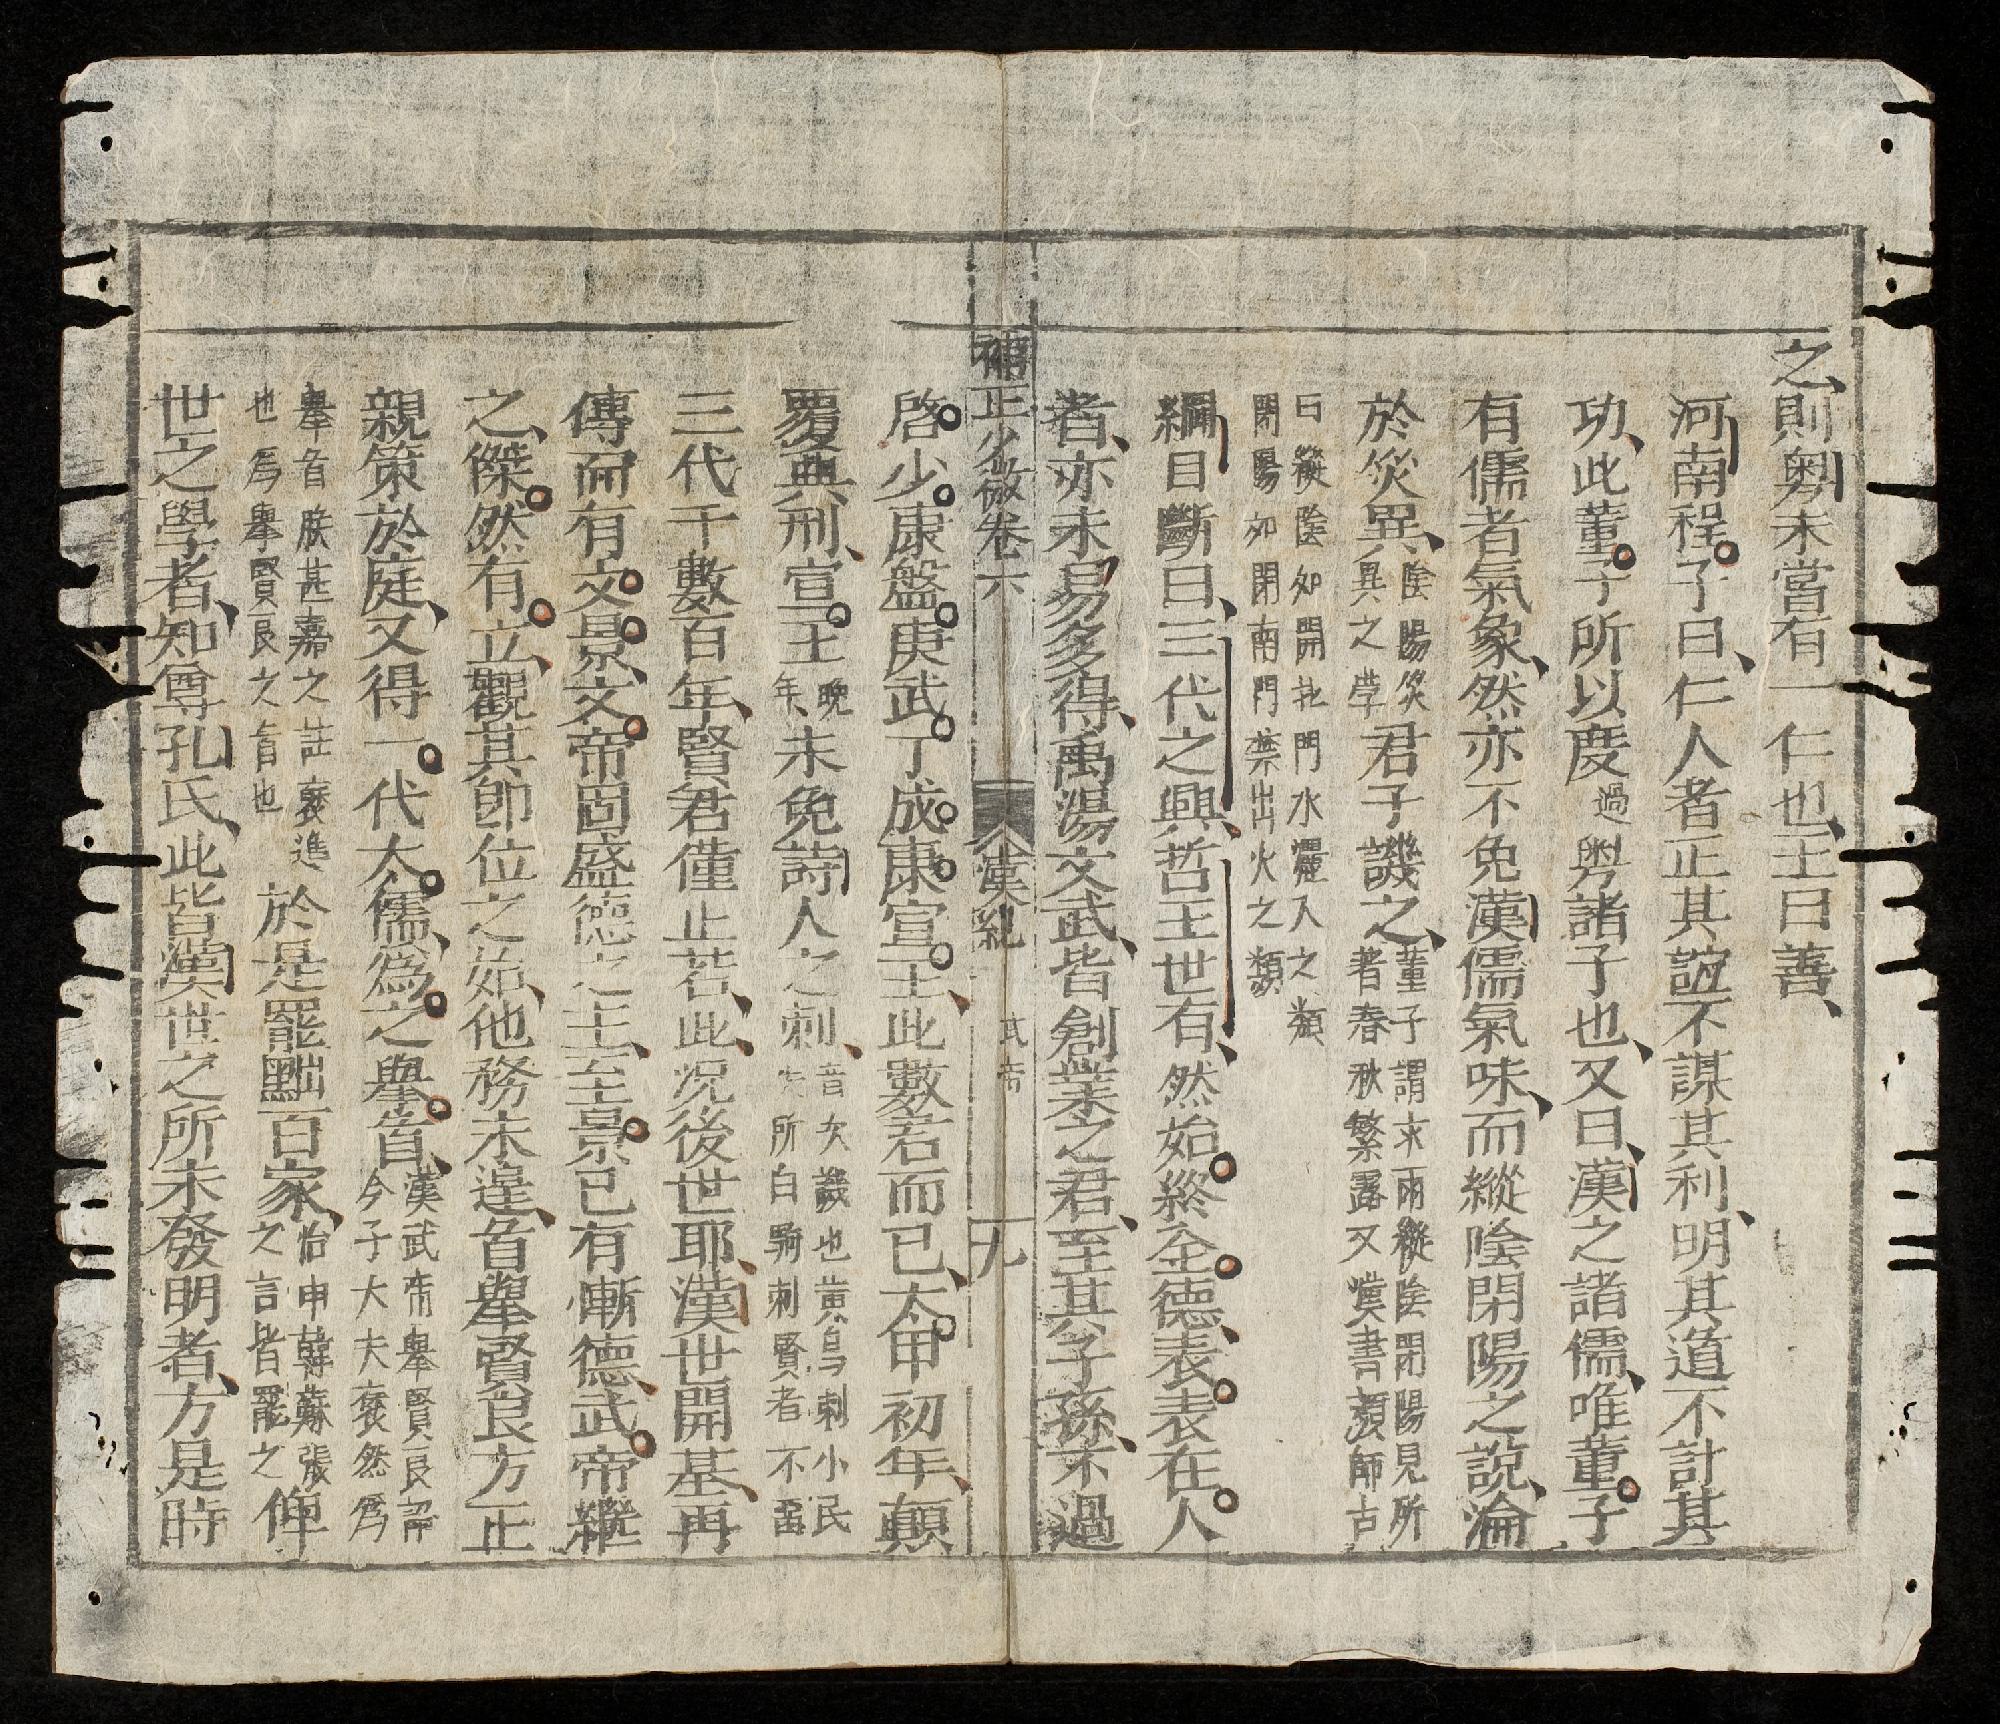 之則粵未嘗有一仁也王曰善
河南程子曰仁人者正其誼不謀其利明其道不計其
功此董子所以度過粵諸子也又曰漢之諸儒唯董子
有儒者氣象然亦不免漢儒氣味而縱陰閉陽之說淪
於災異陰陽災異之學君子譏之董子謂求雨縱陰閉陽見所著春秋繁露又漢書顔師古
曰縱陰如開北門水灑人之類閉陽如閉南門禁出火之類
綱目斷曰三代之興哲王世有然始終全德表表在人
者亦未易多得禹湯文武皆創業之君至其子孫不過
補正少微卷六 漢紀 武帝 十九
啓少康盤庚武丁成康宣王此數君而已太甲初年顛
覆典刑宣王晚年未免詩人之刺音次譏也黃鳥刺小民失所白駒刺賢者不留
三代千數百年賢君僅止若此況後世耶漢世開基再
傳而有文景文帝固盛德之主至景已有慚德武帝繼
之傑然有立觀其卽位之始他務未遑首舉賢良方正
親策於庭又得一代大儒爲之舉首漢武帝舉賢良詔今子大夫褎然爲
舉首朕甚嘉之註褎進也爲舉賢良之首也於是罷黜百家怡申韓蘇張之言皆罷之俾
世之學者知尊孔氏此皆漢世之所未發明者方是時